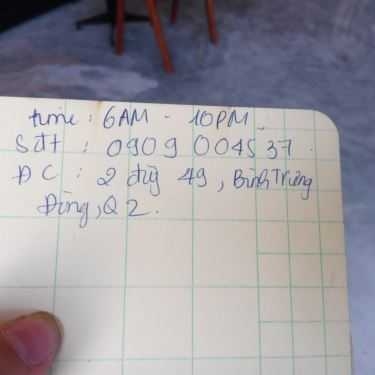 time : 6AM - 10PM
Sđt : 0909 004537.
ĐC : 2 đg 49, Bình Trưng
Đông, Q 2.